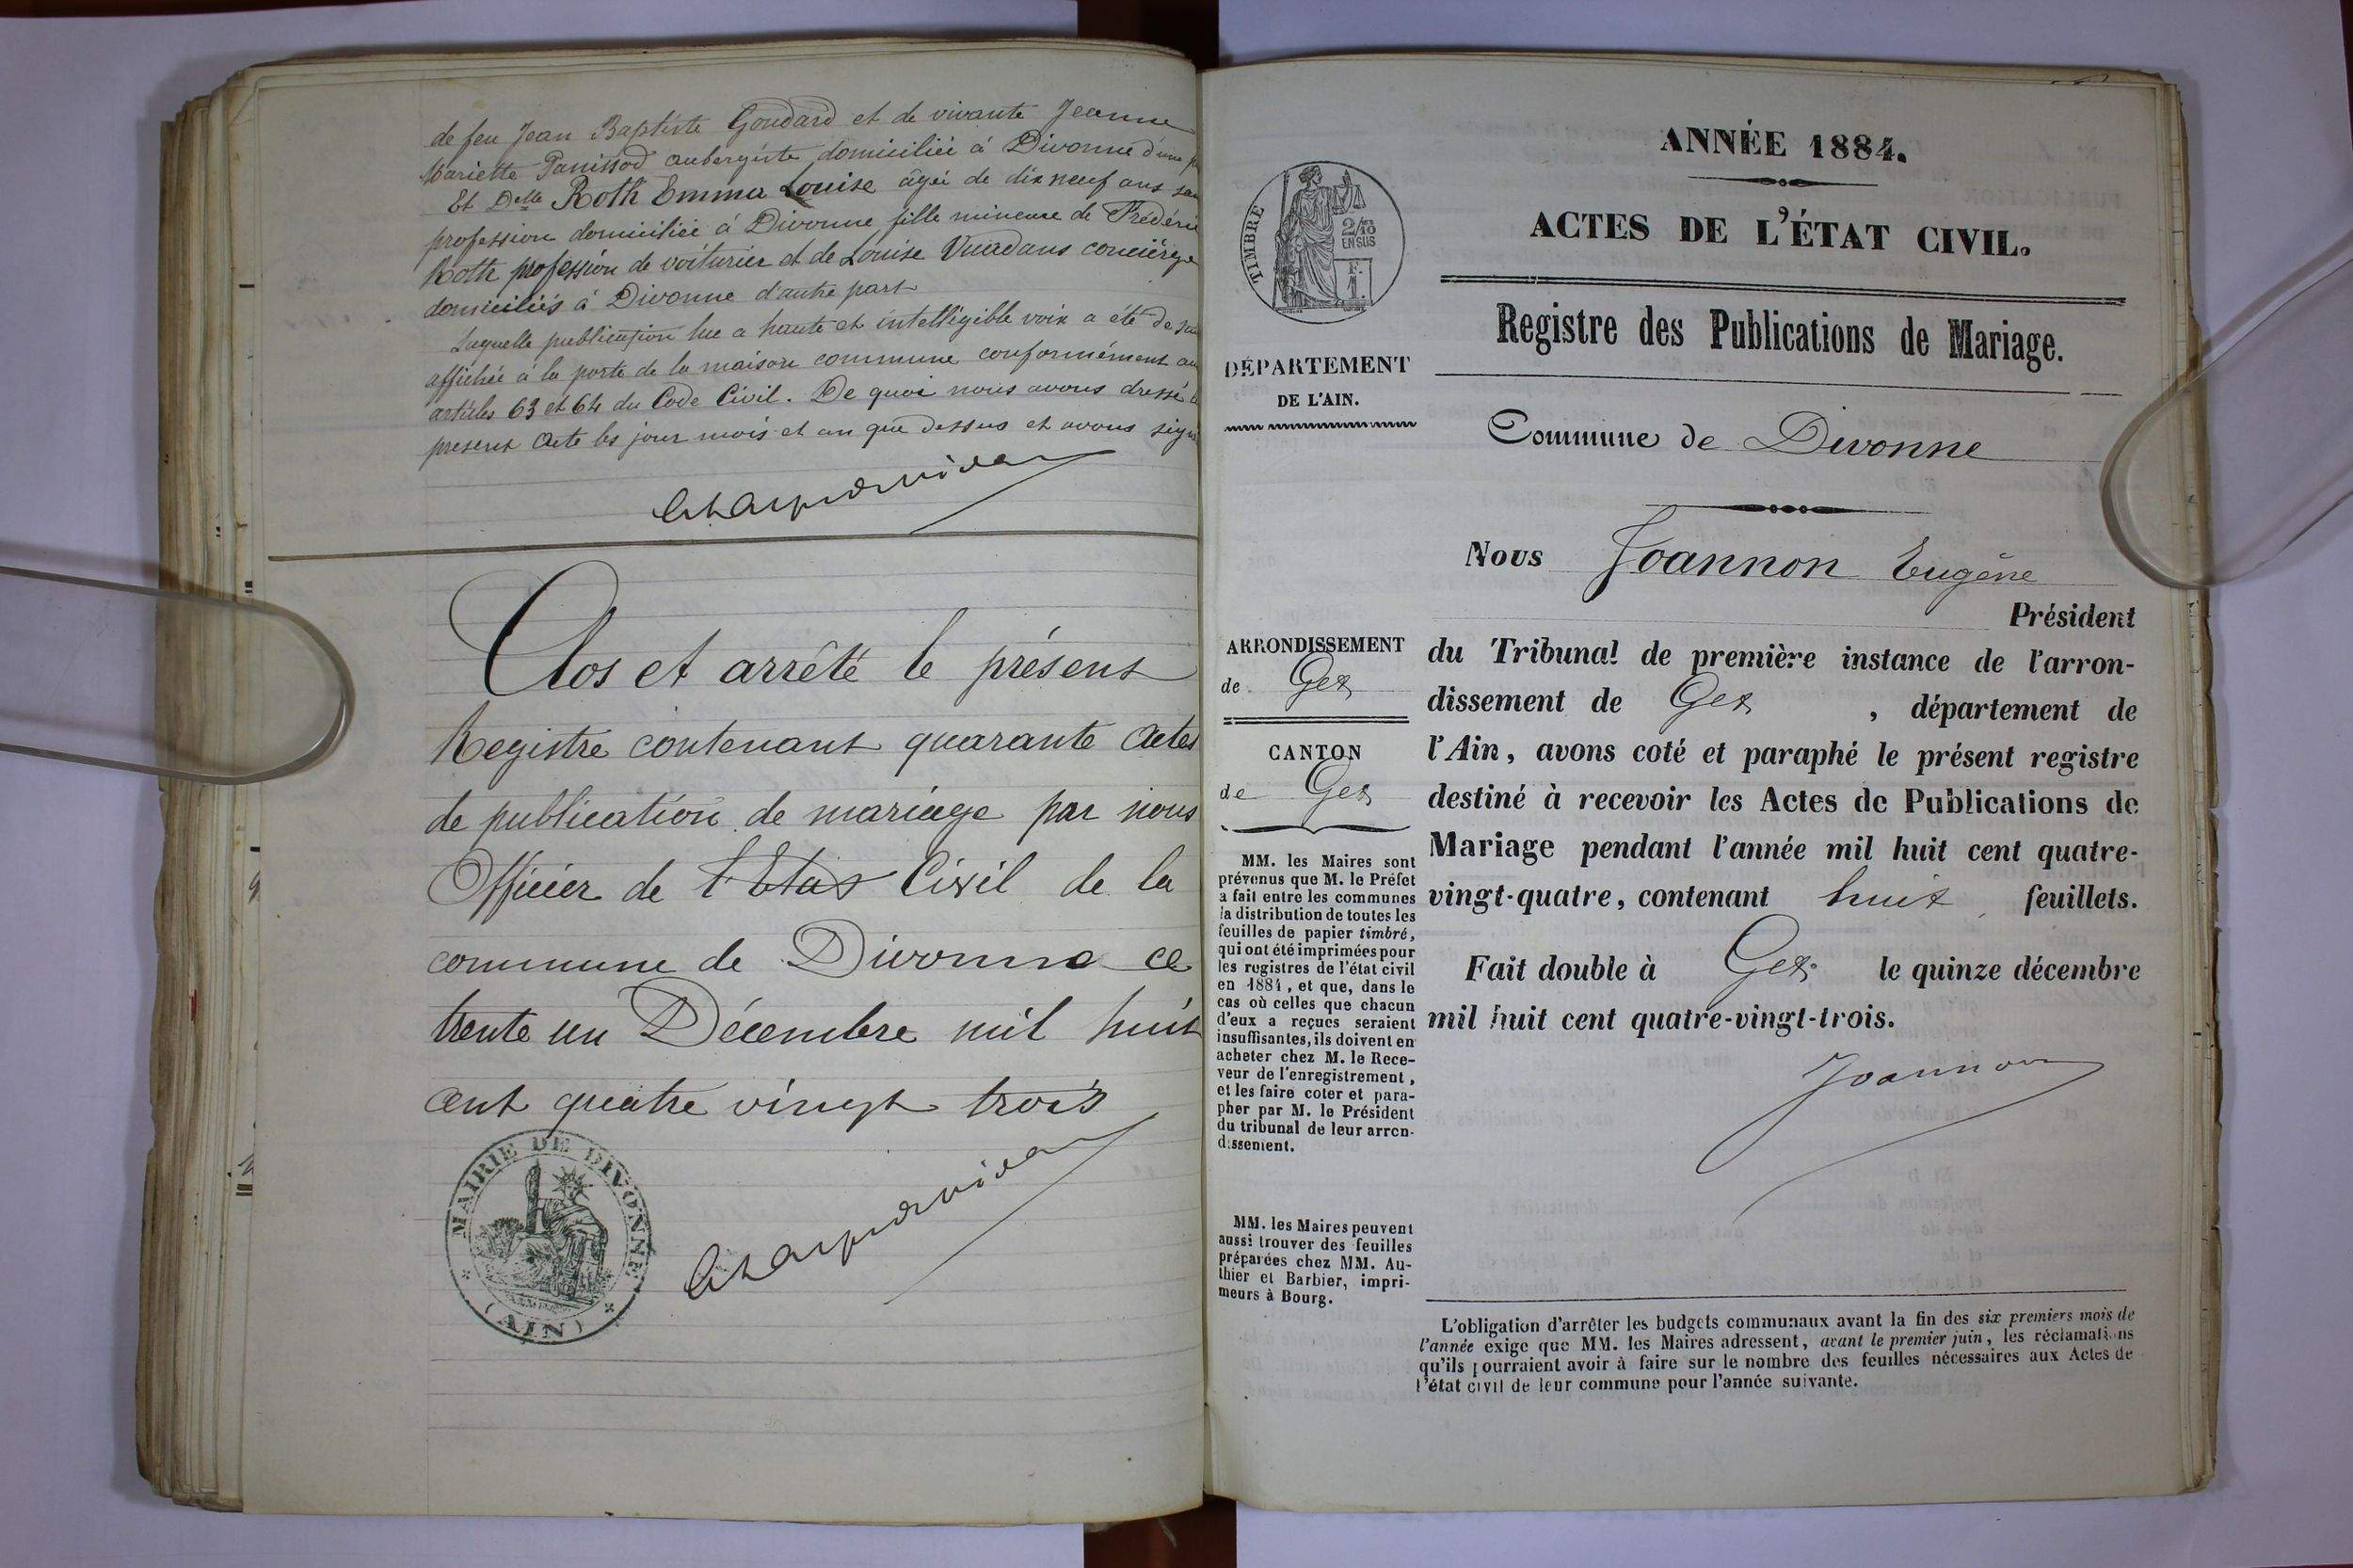 de feu Jean Baptiste Goudard et de vivante Jeanne
Mariette Panissod aubergiste domiciliée à Divonne d'une
Et Delle Roth Emma Louise âgée de dix neuf ans
profession domiciliée à Divonne fille mineure de Fréderic
Roth profession de voiturier et de Louise concierge
domiciliés à Divonne d'autre part
Laquelle publication lue a haute et intelligible voix a été de
affichée à la porte de la maison commune conformément au
articles 63 et 64 du Code Civil. De quoi nous avons dressé
present Acte les jour mois et an que dessus et avons signé
Clos et arrêté le présent
Registre contenant quarante actes
de publication de mariage par nous
Officier de l'Etat Civil de la
commune de Divonne ce
trente un Décembre mil huit
cent quatre vingt trois
MAIRIE DE DIVONNE
(AIN)
TIMBRE
2/10
EN SUS
F.
1.
DÉPARTEMENT
DE L'AIN.
ARRONDISSEMENT
de Gex
CANTON
de Gex
MM. les Maires sont
prévenus que M. le Préfet
a fait entre les communes
la distribution de toutes les
feuilles de papier timbré,
qui ont été imprimées pour
les registres de l'état civil
en 1884, et que, dans le
cas où celles que chacun
d'eux a reçues seraient
insuffisantes, ils doivent en
acheter chez M. le Rece-
veur de l'enregistrement,
et les faire coter et para-
pher par M. le Président
du tribunal de leur arron-
dissement.
MM. les Maires peuvent
aussi trouver des feuilles
préparées chez MM. Au-
thier et Barbier, impri-
meurs à Bourg.
ANNÉE 1884.
ACTES DE L'ÉTAT CIVIL.
Registre des Publications de Mariage.
Commune de Divonne
Nous Joannon Eugène
Président
du Tribunal de première instance de l'arron-
dissement de Gex, département de
l'Ain, avons coté et paraphé le présent registre
destiné à recevoir les Actes de Publications de
Mariage pendant l'année mil huit cent quatre-
vingt-quatre, contenant huit feuillets.
Fait double à Gex le quinze décembre
mil huit cent quatre-vingt-trois.
Joannon
L'obligation d'arrêter les budgets communaux avant la fin des six premiers mois de
l'année exige que MM. les Maires adressent, avant le premier juin, les réclamations
qu'ils pourraient avoir à faire sur le nombre des feuilles nécessaires aux Actes de
l'état civil de leur commune pour l'année suivante.